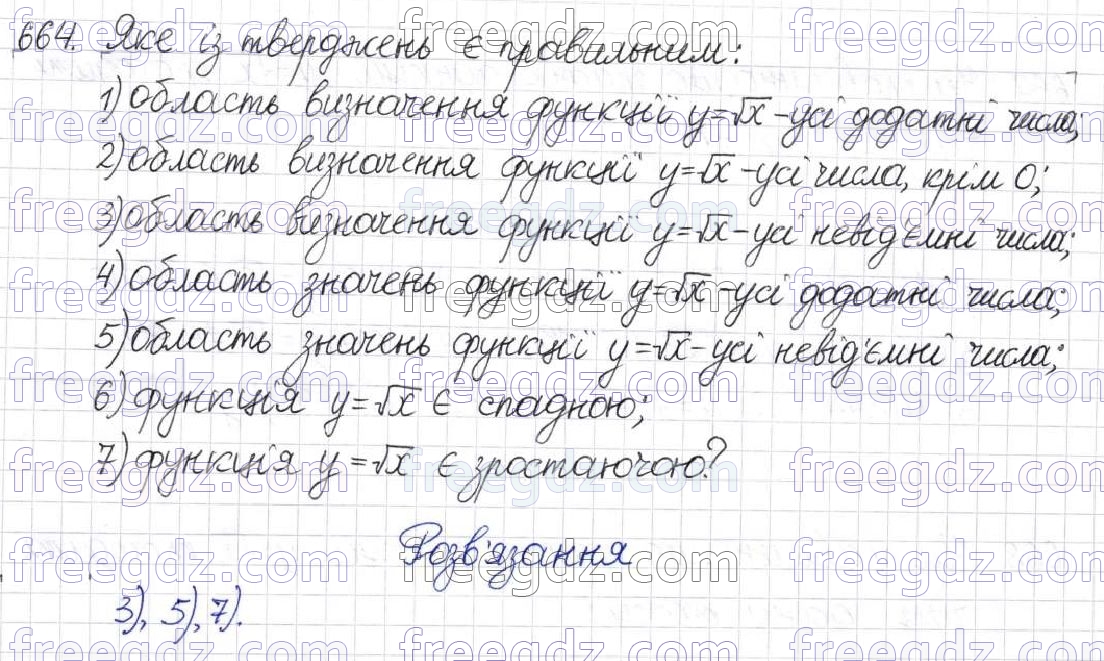 664. Яке із тверджень є правильним:
1) область визначення функції y=√x - усі додатні числа;
2) область визначення функції y=√x - усі числа, крім 0;
3) область визначення функції y=√x - усі невід'ємні числа;
4) область значень функції y=√x - усі додатні числа;
5) область значень функції y=√x - усі невід'ємні числа;
6) функція y=√x є спадною;
7) функція y=√x є зростаючою?
Розв'язання
3), 5), 7).
freegdz.com